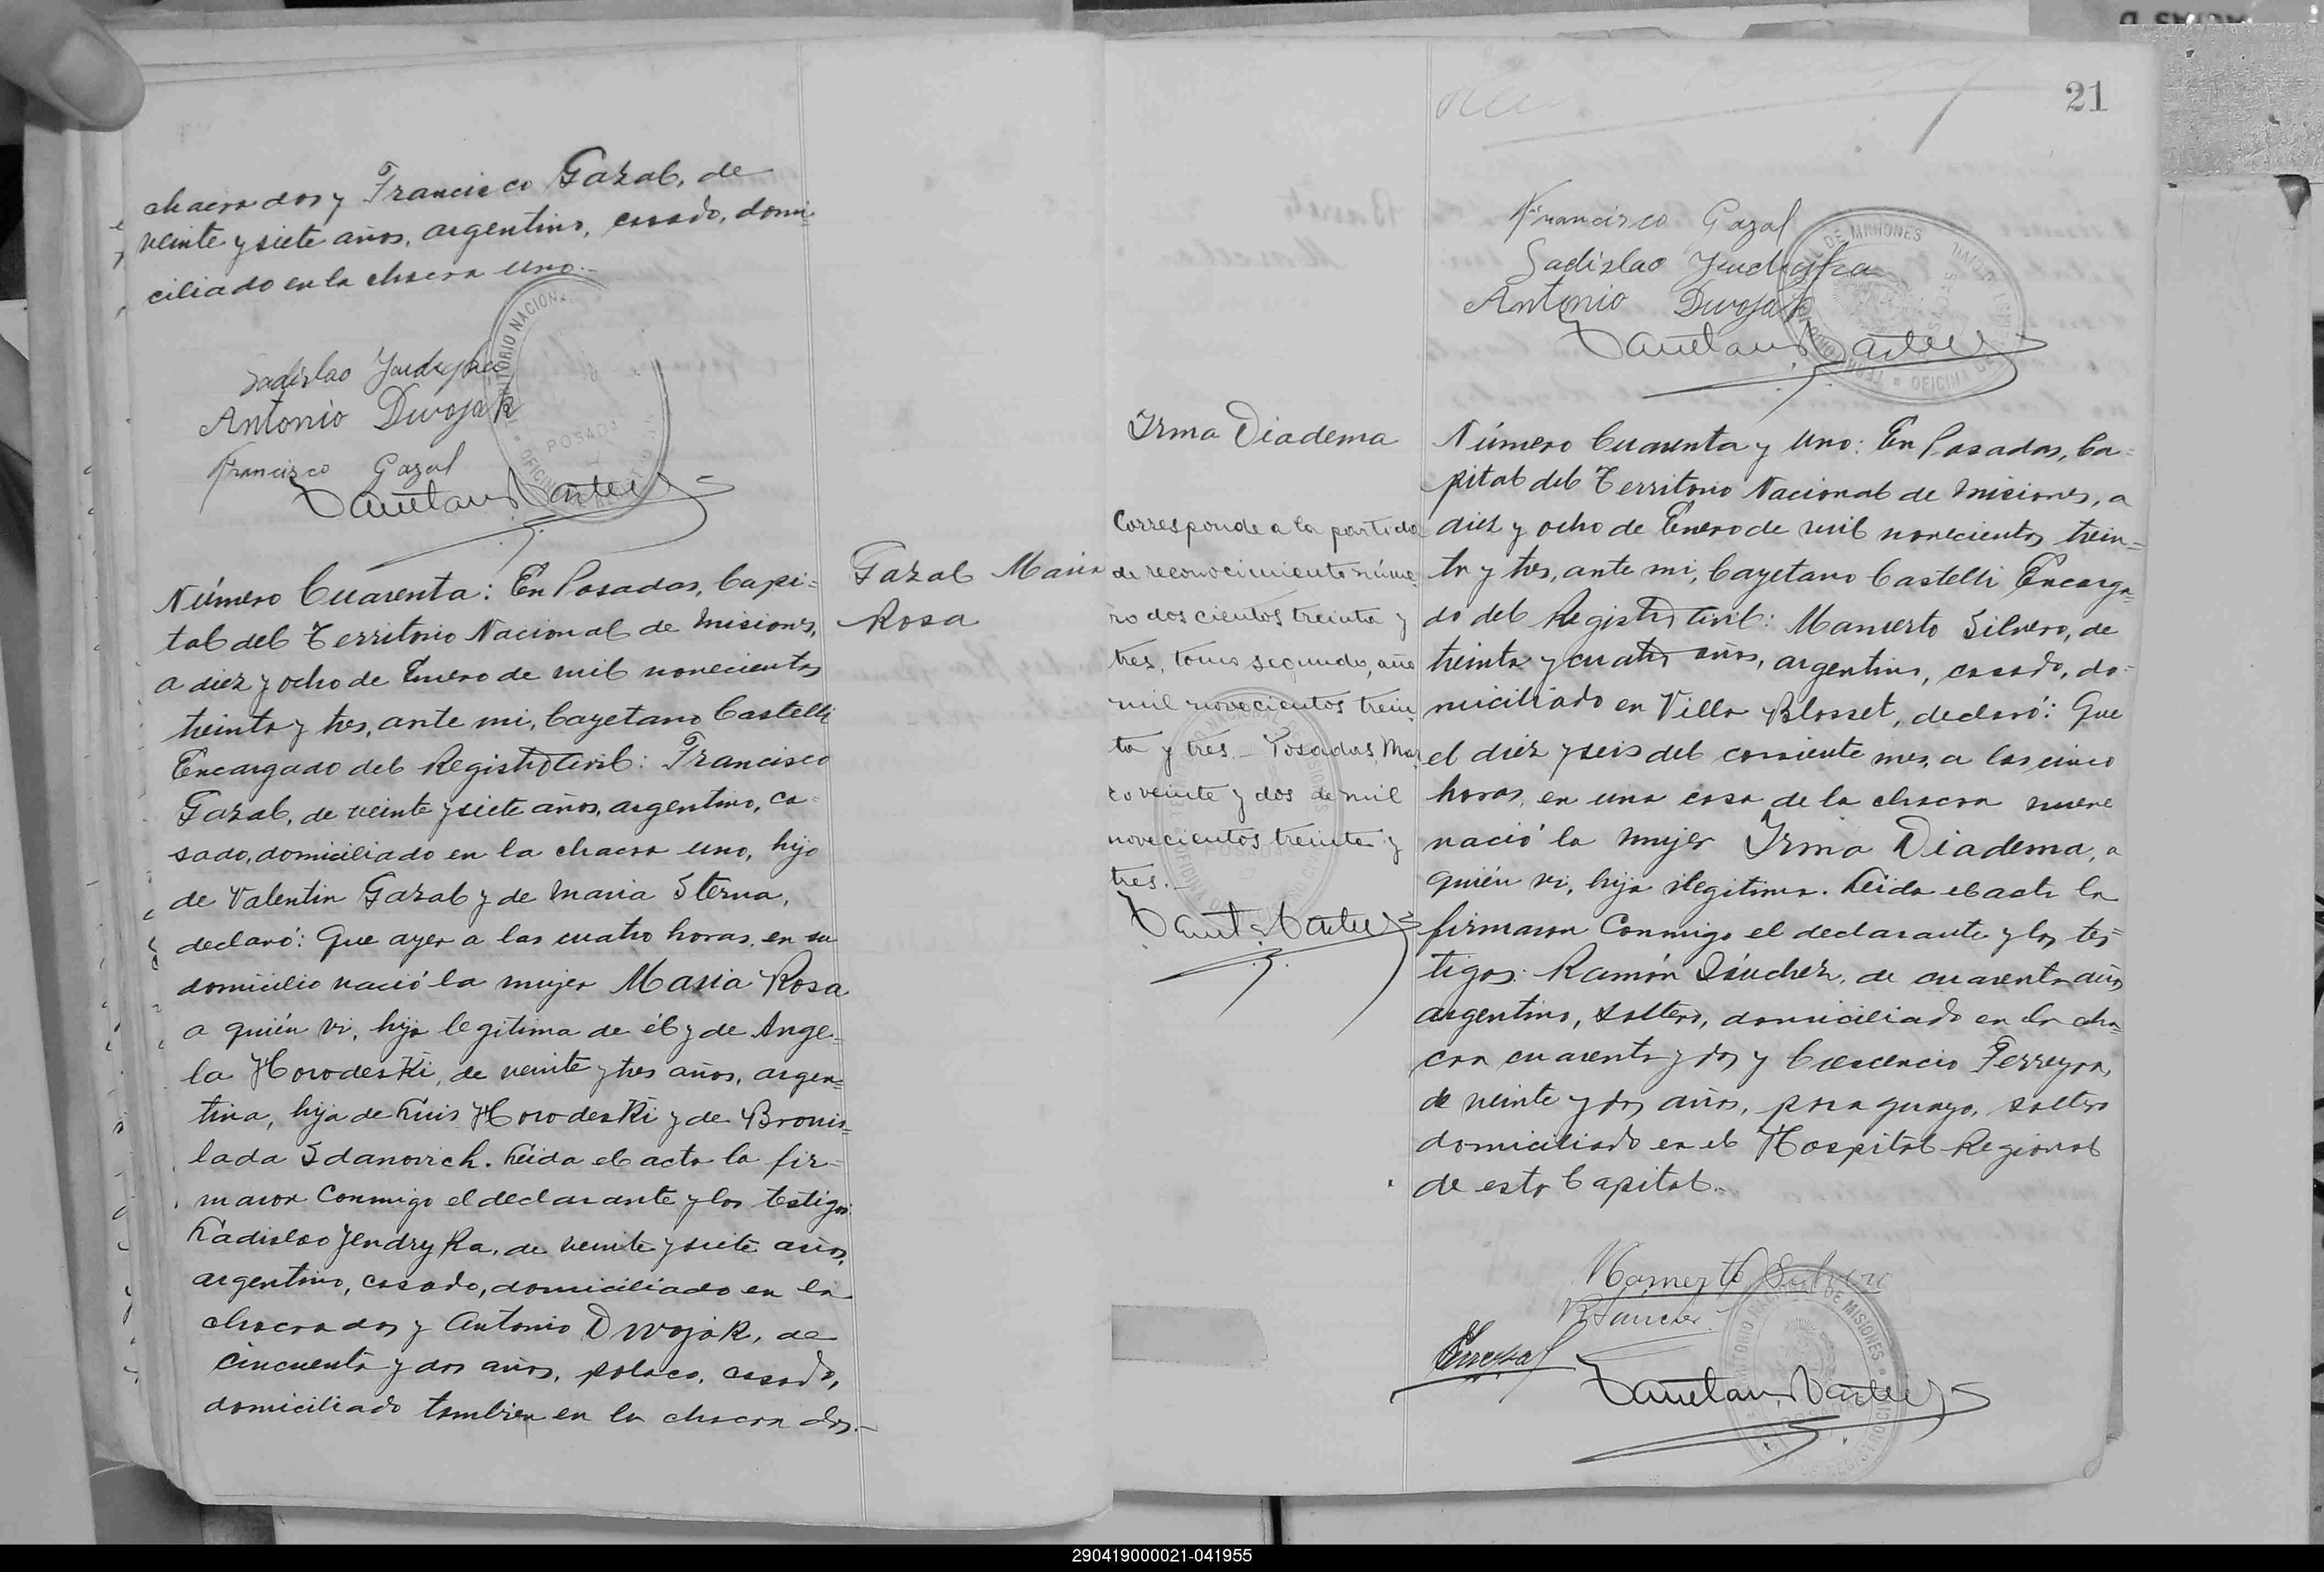 chacra dos y Francisco Gazal, de
veinte y siete años, argentino, casado, domi-
ciliado en la chacra uno.-
Ladislao Jendryka
Antonio Dwojak
Francisco Gazal
Número Cuarenta: En Posadas, Capi=
tal del Territorio Nacional de Misiones,
a diez y ocho de Enero de mil novecientos
treinta y tres, ante mi, Cayetano Castelli
Encargado del Registro Civil: Francisco
Gazal, de veinte y siete años, argentino, ca-
sado, domiciliado en la chacra uno, hijo
de Valentin Gazal y de Maria Sterna,
declaró: Que ayer a las cuatro horas, en su
domicilio nació la mujer Maria Rosa
a quién vi, hija legitima de él y de Ange=
la Horodeski, de veinte y tres años, argen=
tina, hija de Luis Horodeski y de Bronis=
lada Sdanovich. Leida el acta la fir=
maron Conmigo el declarante y los testigos:
Ladislao Jendryka, de veinte y siete años,
argentino, casado, domiciliado en la
chacra dos y Antonio Dwojak, de
cincuenta y dos años, polaco, casado,
domiciliado tambien en la chacra dos.-
Gazal Maria
Rosa
21
Francisco Gazal
Ladislao Jendryka
Antonio Dwojak
Irma Diadema
Corresponde a la partida
de reconocimiento núme-
ro doscientos treinta y
tres, tomo segundo, año
mil novecientos trein-
ta y tres._ Posadas, Mar-
zo veinte y dos de mil
novecientos treinta y
tres._
Número Cuarenta y Uno: En Posadas, Ca=
pital del Territorio Nacional de Misiones, a
diez y ocho de Enero de mil novecientos trein=
ta y tres, ante mi, Cayetano Castelli Encarga=
do del Registro Civil: Mamerto Silvero, de
treinta y cuatro años, argentino, casado, do-
miciliado en Villa Blosset, declaró: Que
el diez y seis del corriente mes, a las cinco
horas, en una casa de la chacra nueve
nació la mujer Irma Diadema, a
quién vi, hija ilegitima. Leida el acta la
firmaron Conmigo el declarante y los tes-
tigos: Ramón Sánchez, de cuarenta años,
argentino, soltero, domiciliado en la cha=
cra cuarenta y dos y Crescencio Ferreyra,
de veinte y dos años, paraguayo, soltero
domiciliado en el Hospital Regional
de esta Capital.-
Mamerto Silvero
R Sanchez
290419000021-041955